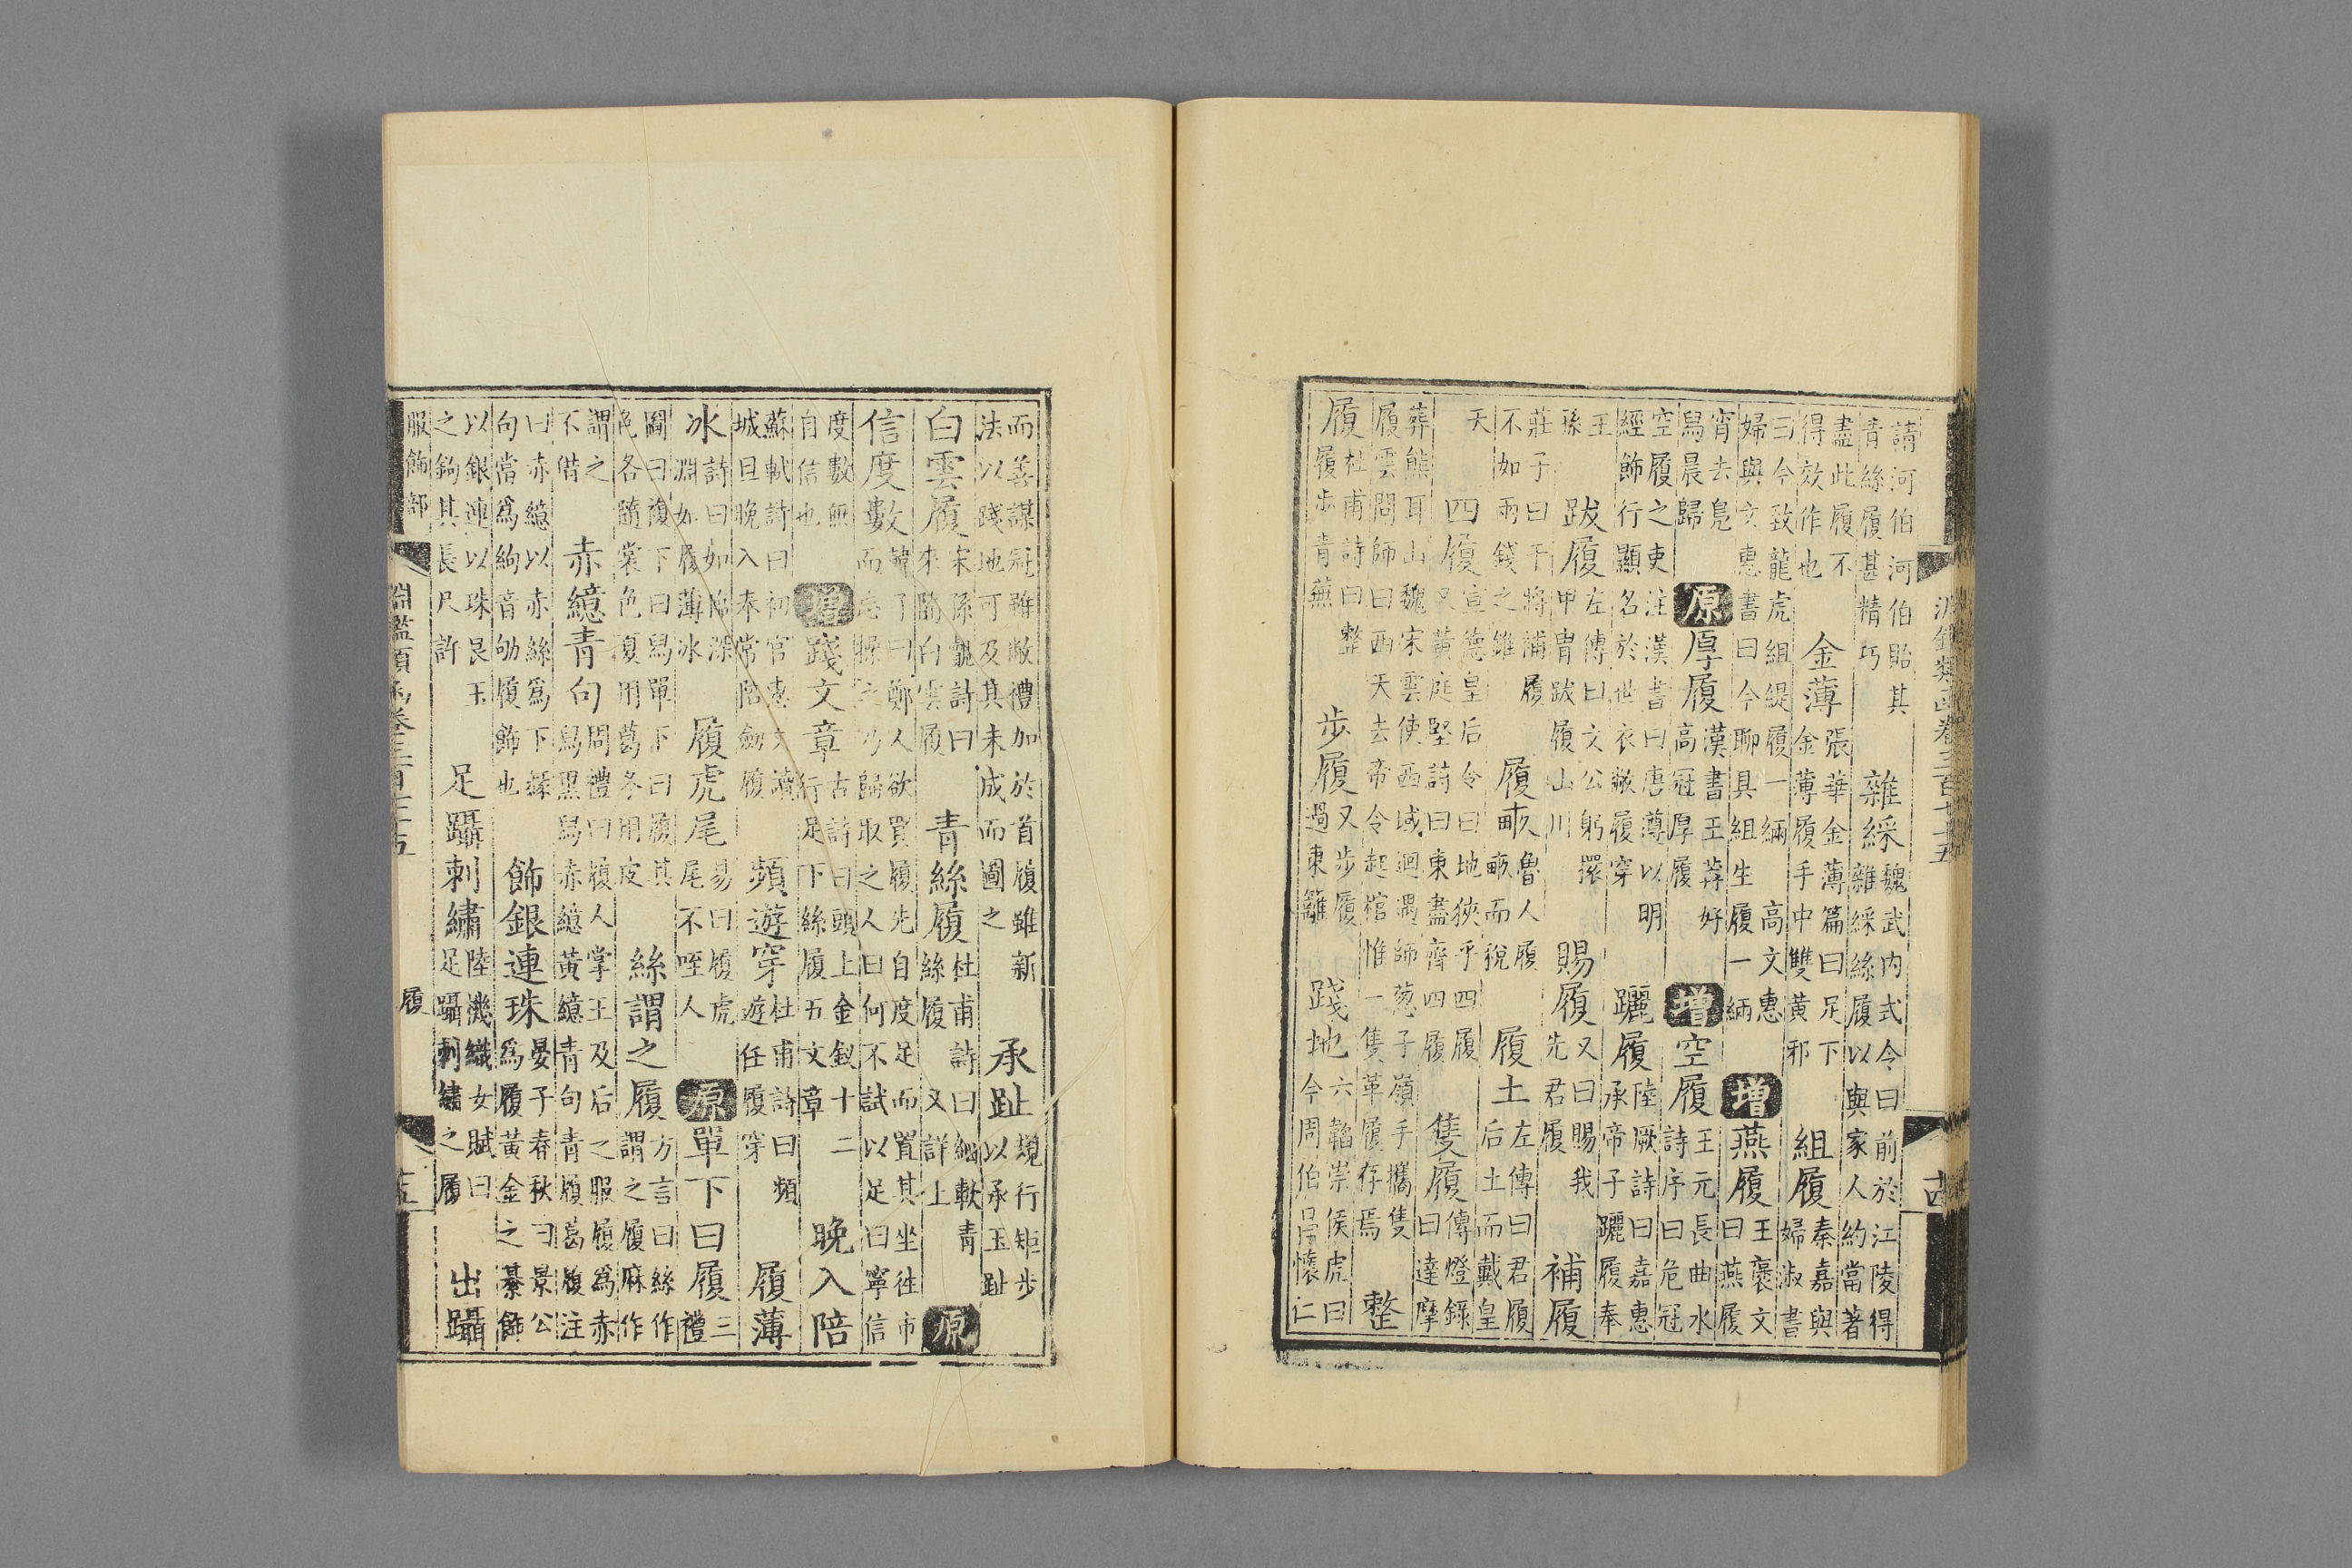 淵鑑類函卷三百七十五 十四
請河伯河伯貽其青絲履甚精巧 雜綵 魏武内式令曰前於江陵得雜綵絲履以與家人約當著
盡此履不得效作也 金薄 張華金薄篇曰足下金薄履手中雙黄邪 組履 秦嘉與婦淑書
曰今致龍虎組緹履一緉 高文惠婦與文惠書曰今聊具組生履一緉 增 燕履 王褒文曰燕履
宵去凫舄晨歸 原 厚履 漢書王莽好高冠厚履 增 空履 王元長曲水詩序曰危冠
空履之吏注漢書曰唐遵以明經飾行顯名於世衣敝履穿 躧履 陸厥詩曰嘉惠承帝子躧履奉
王孫 跋履 左傳曰文公躬擐甲冑跋履山川 賜履 又曰賜我先君履 補履
莊子曰干將補履不如兩錢之錐 履畝 魯人履畝而稅 履土 左傳曰君履后土而戴皇
天 四履 宣德皇后令曰地狹乎四履又黃庭堅詩曰東盡齊四履 隻履 傳燈錄曰達摩
葬熊耳山魏宋雲使西域迴遇師葱子嶺手攜隻履雲問師曰西天去帝令起棺惟一隻革履存焉 整
履 杜甫詩曰整履步青蕪 步履 又步履過東籬 踐地 六韜崇侯虎曰今周伯昌懷仁
而善謀冠雖敝禮加於首履雖新法以踐地可及其未成而圖之 承趾 規行矩步以承玉趾
白雲履 宋孫覿詩曰來踏白雲履 青絲履 杜甫詩曰細軟青絲履 又詳上 原
信度數 韓子曰鄭人欲買履先自度足而置其坐往市而忘操之乃歸取之人曰何不試以足曰寧信
度數無自信也 增 踐文章 古詩曰頭上金釵十二行足下絲履五文章 晚入陪
蘇軾詩曰初官事文潞城旦晚入奉常陪劍履 頻遊穿 杜甫詩曰頻遊任履穿 履薄
冰 詩曰如臨深淵如履薄冰 履虎尾 易曰履虎尾不咥人 原 單下曰履 三禮
圖曰複下曰舄單下曰履其色各隨裳色夏用葛冬用皮 絲謂之履 方言曰絲作謂之履麻作
謂之不借 赤繶青句 周禮曰履人掌王及后之服履爲赤舄黑舄赤繶黃繶青句青履葛履注
曰赤繶以赤絲爲下緣句當爲絇音劬履飾也 飾銀連珠 晏子春秋曰景公爲履黃金之綦飾
以銀連以珠良玉之鉤其長尺許 足躡刺繡 陸機織女賦曰足躡刺繡之履 出躡
服飾部 淵鑑類函卷三百七十五 履 十五